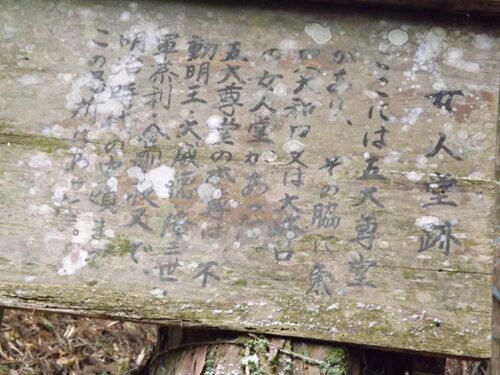 女人堂跡
ここには五大尊堂
があり、その脇に東
口(大和口又は大峰口
の女人堂があった。
五大尊堂の本尊は不
動明王、大威徳、降三世
軍荼利、金剛夜叉で、
明治時代の中頃まで
この場所にあった。